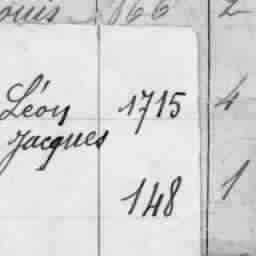 ouis 166 2
Léon 1715 4
Jacques
148 1